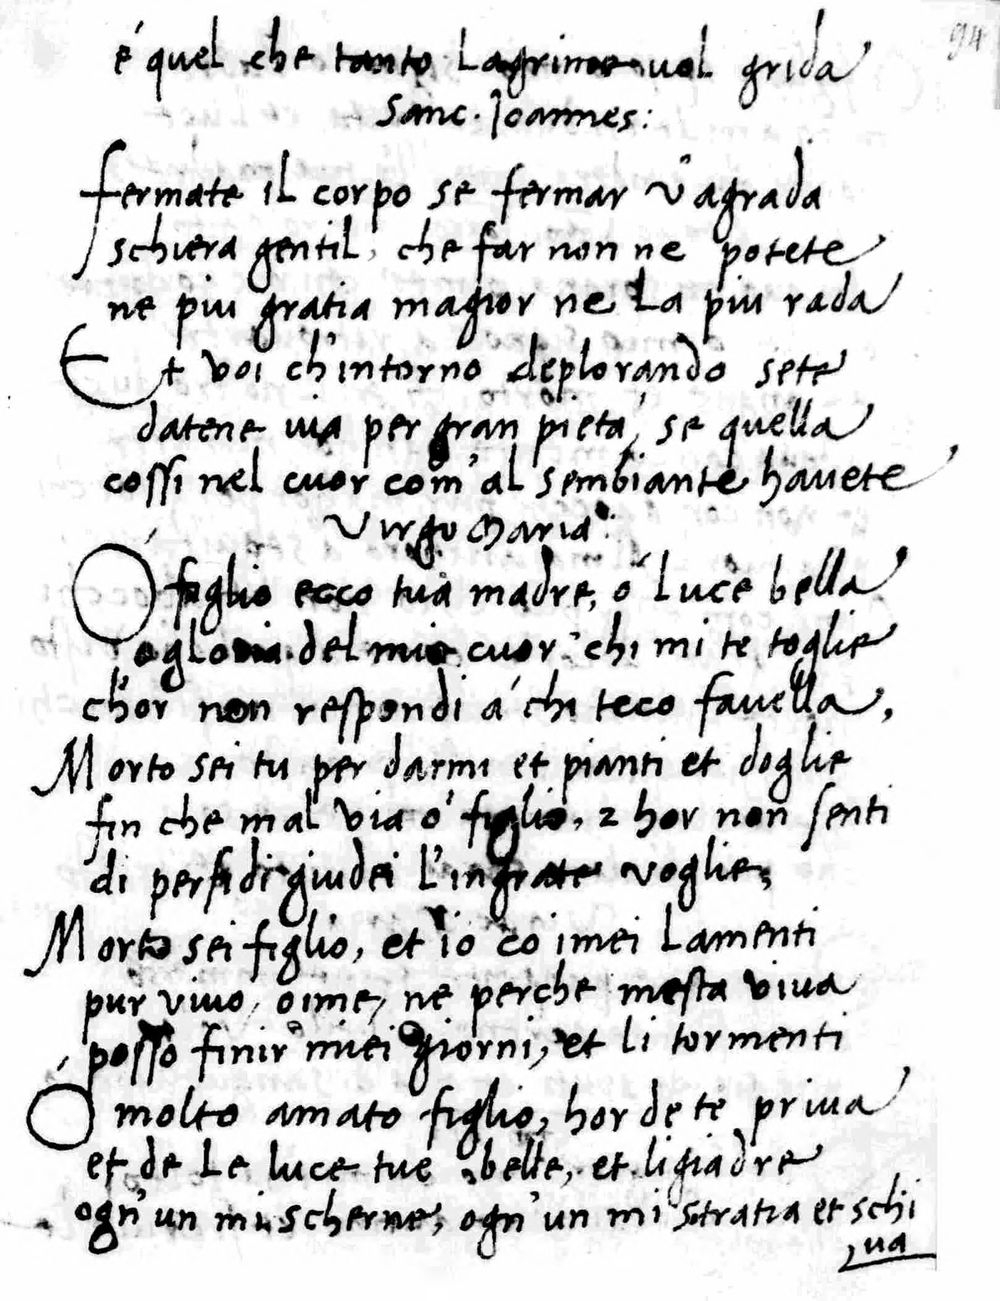 94
é quel che tanto Lagrime vol grida
Sanc. Joannes:
fermate il corpo se fermar v'agrada
schiera gentil, che far non ne potete
ne piu gratia magior ne La piu rada
Et voi ch'intorno deplorando sete
datene via per gran pietà, se quella
cossi nel cuor com'al sembiante havete
Virgo Maria:
O figlio ecco tua madre, ó luce bella
o gloria del mio cuor: chi mi te toglie
ch'or non respondi á chi teco favella,
Morto sei tu per darmi et pianti et doglie
fin che mal via ó figlio, 2 hor non senti
di perfidi giudei l'ingrate voglie;
Morto sei figlio, et io co imei Lamenti
pur vivo, oime, ne perche mesta viva
posso finir miei giorni, et li tormenti
O molto amato figlio, hor de te priva
et de Le luce tue belle, et ligiadre
ogn'un mi scherne, ogn'un mi stratia et schi
va